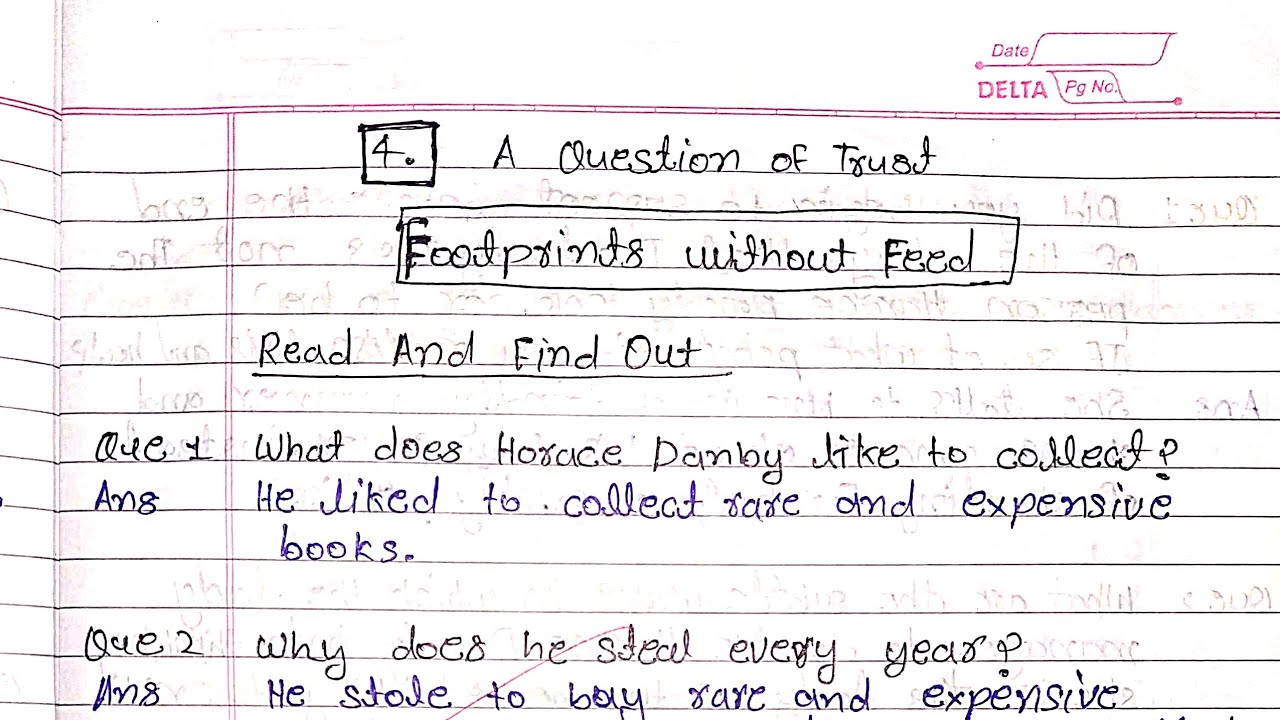 Date
DELTA Pg No.
4. A Question of Trust
Footprints without Feed
Read And Find Out
Que 1 What does Horace Danby like to collect?
Ans He liked to collect rare and expensive
books.
Que 2 Why does he steal every year?
Ans He stole to bay rare and expensive